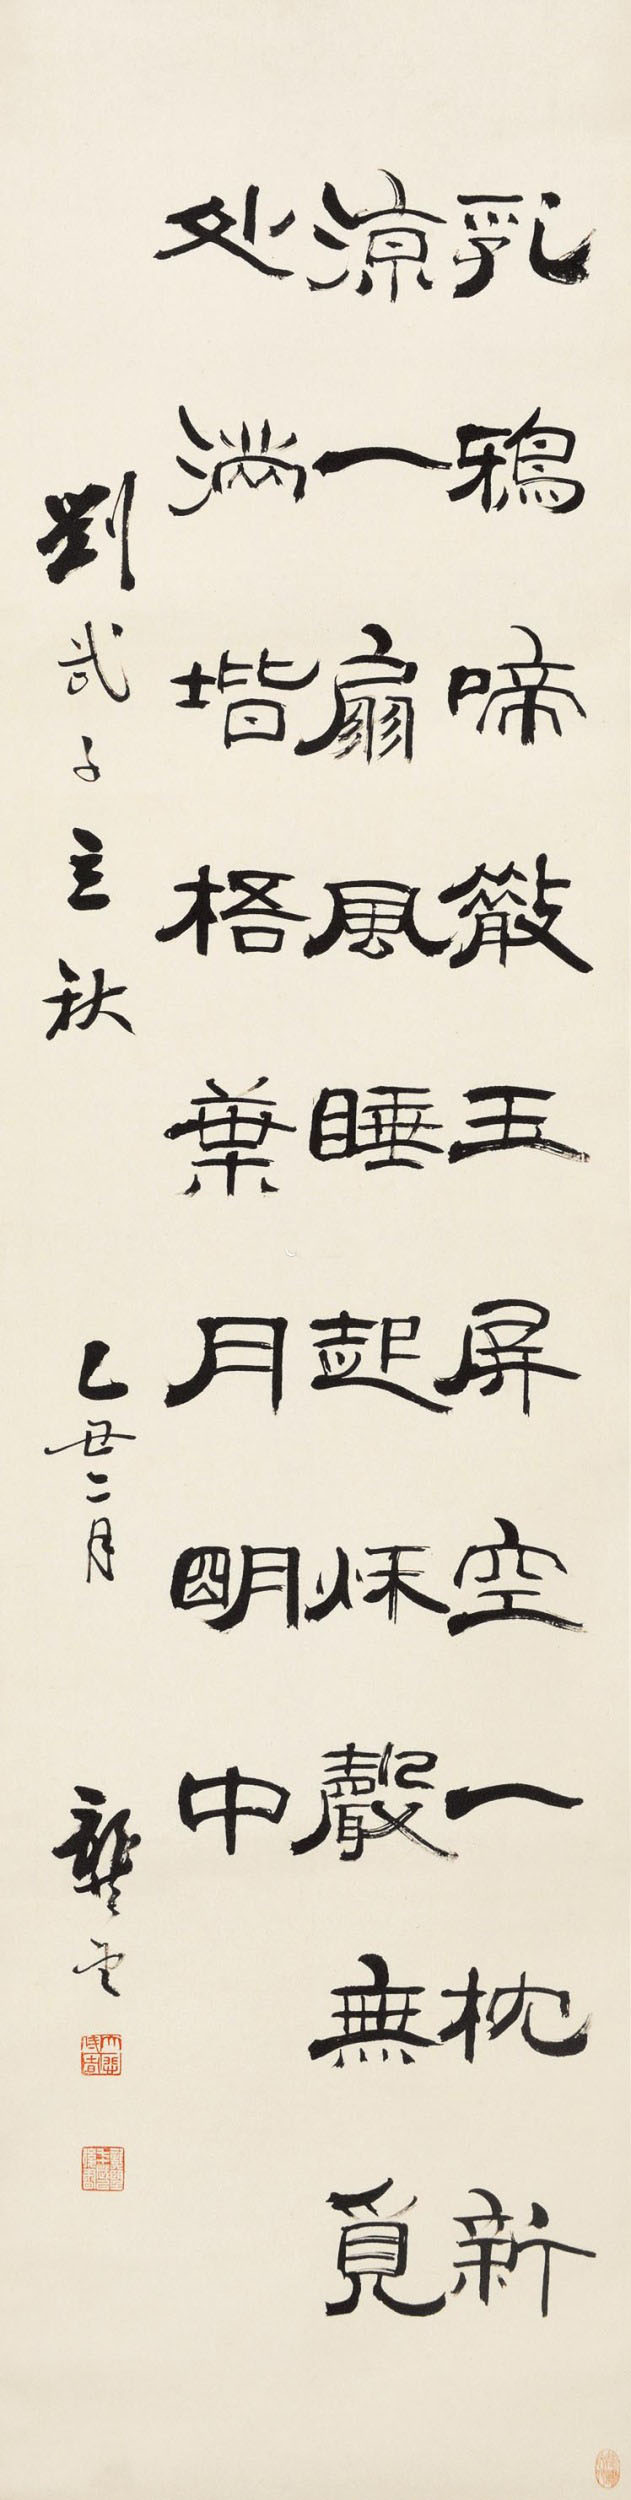 乳鴉啼散玉屏空一枕新
涼一扇風睡起秌聲無覓
处滿堦梧葉月明中
劉武子立秋 乙丑二月 龔望